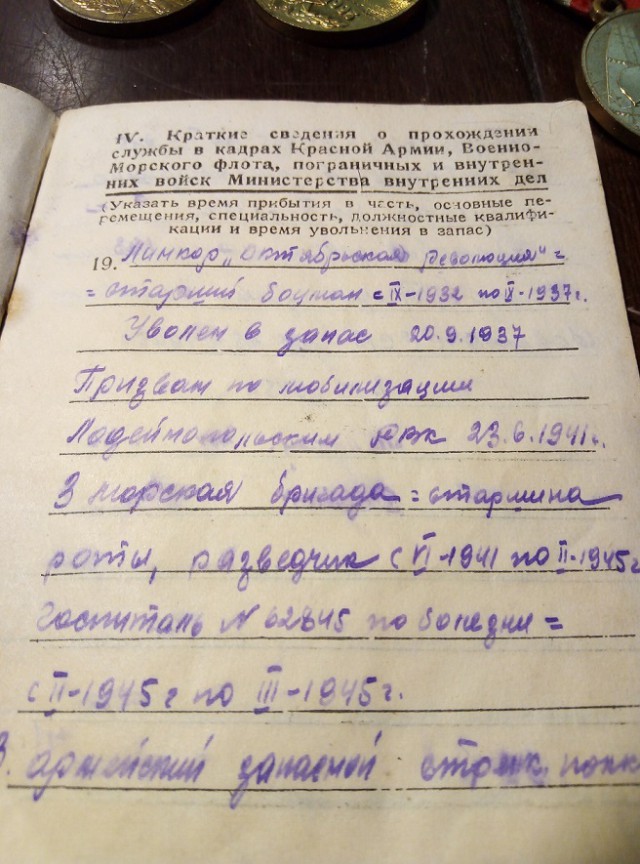 IV. Краткие сведения о прохождении
службы в кадрах Красной Армии, Военно-
Морского флота, пограничных и внутрен-
них войск Министерства внутренних дел
(Указать время прибытия в часть, основные пе-
ремещения, специальность, должностные квалифи-
кации и время увольнения в запас)
19. Линкор „Октябрьская революция" =
= старший боцман с IX-1932 по IX-1937г.
Уволен в запас 20.9.1937
Призван по мобилизации
Лодейнопольским РВК 23.6.1941г.
3 морская бригада = старшина
роты, разведчик с VI-1941 по II-1945г
Госпиталь N 02845 по болезни =
с II-1945г по III-1945г.
армейский запасной стрелк. полк